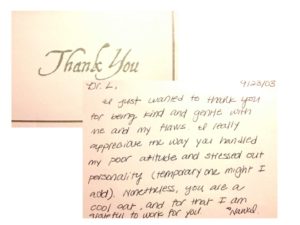 Thank You
Dr. L.
9/23/03
I just wanted to thank you
for being kind and gentle with
me and my flaws. I really
appreciate the way you handled
my poor attitude and stressed out
personality (temporary one might I
add). Nonetheless, you are a
cool cat, and for that I am
grateful to work for you